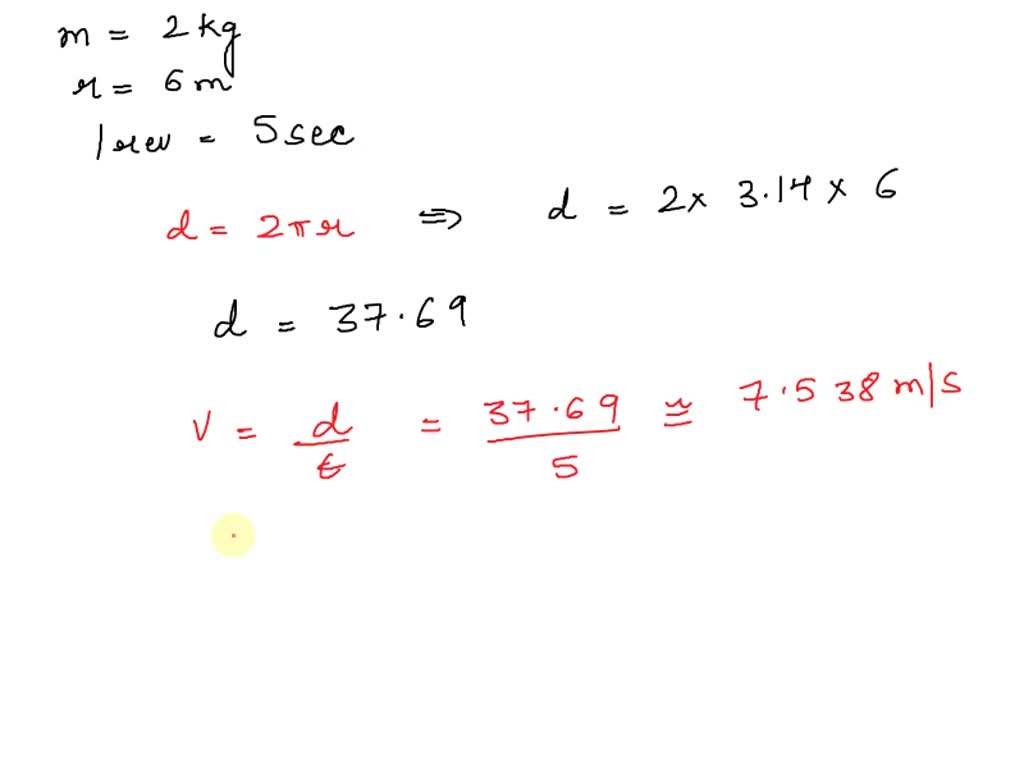 m = 2 kg
r = 6 m
1 rev = 5 sec
d = 2πr ⇒ d = 2 × 3.14 × 6
d = 37.69
V = d/t = 37.69/5 ≅ 7.538 m/s